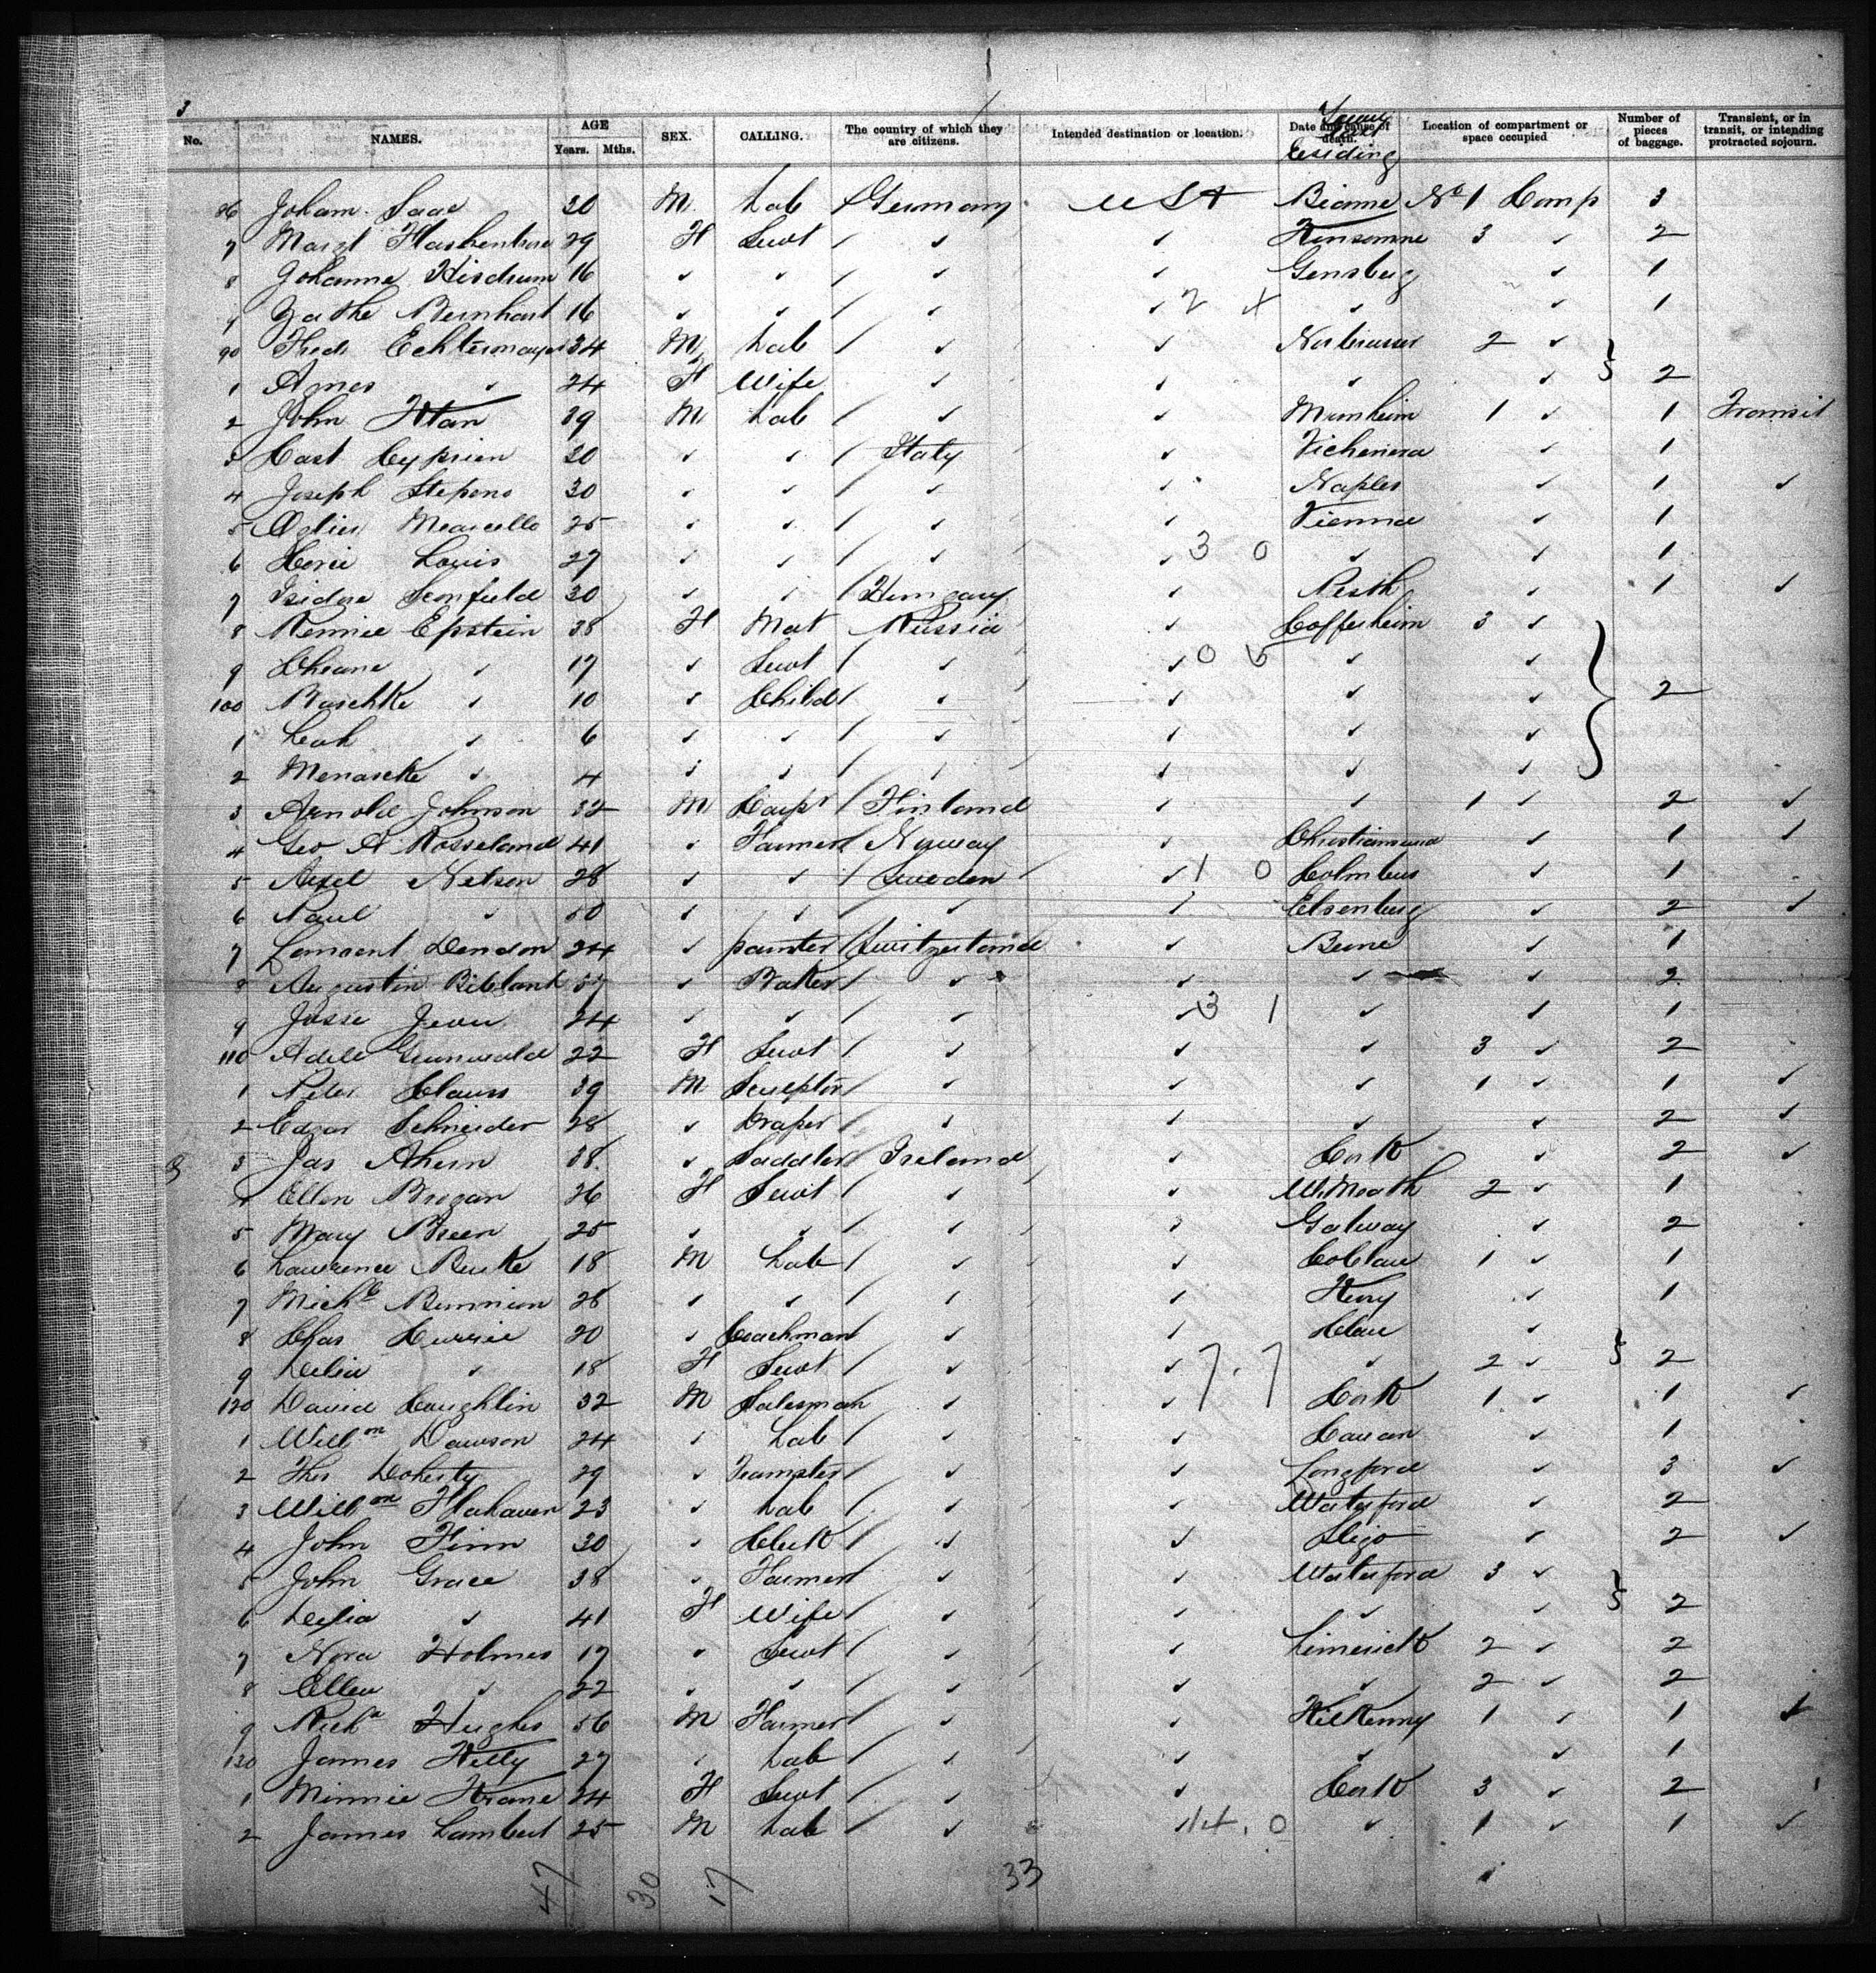 3
No. NAMES. AGE Years. Mths. SEX. CALLING. The country of which they are citizens. Intended destination or location. Date and cause of death. Location of compartment or space occupied Number of pieces of baggage. Transient, or in transit, or intending protracted sojourn.
residing
86 Joham 20 M Lab Germany USA No 1 Comp 3
7 29 F Servt ✓ ✓ 3 ✓ 2
8 Johanne 16 ✓ ✓ ✓ ✓ Gensberg ✓ 1
9 Bernhart 16 ✓ ✓ ✓ ✓ 2 ✓ ✓ 1
90 Fredr Echtermayer 34 M Lab ✓ ✓ 2 ✓
1 Agnes ✓ 24 F Wife ✓ ✓ ✓ ✓ 2
2 John 39 M Lab ✓ ✓ Manheim 1 ✓ 1 Transit
3 Cast Cyprien 20 ✓ ✓ Italy ✓ ✓ 1
4 Joseph Stepens 30 ✓ ✓ ✓ ✓ Naples ✓ 1 ✓
5 Marcello 25 ✓ ✓ ✓ ✓ Vienna ✓ 1
6 Louis 27 ✓ ✓ ✓ ✓ 3 0 ✓ ✓ 1
7 Isidore Sconfield 30 ✓ ✓ Hungary ✓ Pesth ✓ 1 ✓
8 Epstein 38 F Mat Russia ✓ 3 ✓
9 ✓ 17 ✓ Servt ✓ ✓ 0 5 ✓ ✓
100 Raschke ✓ 10 ✓ Child ✓ ✓ ✓ ✓ 2
1 Leah ✓ 6 ✓ ✓ ✓ ✓ ✓ ✓
2 Menaseke ✓ 4 ✓ ✓ ✓ ✓ ✓ ✓
3 Arnold Johnson 32 M Carpr Finland ✓ ✓ 1 ✓ 2 ✓
4 Geo A Rosseland 41 ✓ Farmer Norway ✓ Christiansand ✓ 1 ✓
5 Axel Nelson 28 ✓ ✓ Sweden ✓ 1 0 Colmbus ✓ 1
6 Paul ✓ 50 ✓ ✓ ✓ ✓ Elsenburg ✓ 2 ✓
7 Dendon 24 ✓ painter Switzerland ✓ Berne ✓ 1
8 Augustin 57 ✓ Baker ✓ ✓ ✓ ✓ 2
9 Josse Jean 24 ✓ ✓ ✓ ✓ 3 1 ✓ ✓ 1
110 Adele Grunwald 22 F Servt ✓ ✓ ✓ 3 ✓ 2
1 Peter Clauss 39 M Sculptor ✓ ✓ ✓ 1 ✓ 1 ✓
2 Edgar Schneider 28 ✓ Draper ✓ ✓ ✓ ✓ 2 ✓
3 Jas Ahern 38 ✓ Saddler Ireland ✓ Cork ✓ 2 ✓
4 Ellen Brogan 26 F Servt ✓ ✓ W. Meath 2 ✓ 1
5 Mary Breen 25 ✓ ✓ ✓ ✓ Galway ✓ 2
6 Lawrence Burke 18 M Lab ✓ ✓ Co Clare 1 ✓ 1
7 Michl 28 ✓ ✓ ✓ ✓ Kerry ✓ 1
8 Chas Currie 20 ✓ Coachman ✓ ✓ Clare ✓
9 Delia ✓ 18 F Servt ✓ ✓ 7 . 7 ✓ 2 ✓ 2
120 David Coughlin 32 M Salesman ✓ ✓ Cork 1 ✓ 1 ✓
1 Willm Dawson 24 ✓ Lab ✓ ✓ Cavan ✓ 1
2 Thos Doherty 29 ✓ Teamster ✓ ✓ Longford ✓ 3 ✓
3 Willm Flahaven 23 ✓ Lab ✓ ✓ Waterford ✓ 2
4 John Finn 30 ✓ Clerk ✓ ✓ Sligo ✓ 2 ✓
5 John Grace 38 ✓ Farmer ✓ ✓ Waterford 3 ✓
6 Delia ✓ 41 F Wife ✓ ✓ ✓ ✓ 2
7 Nora Holmes 17 ✓ Servt ✓ ✓ Limerick 2 ✓ 2
8 Ellen ✓ 22 ✓ ✓ ✓ ✓ ✓ 2 ✓ 2
9 Richd Hughes 56 M Farmer ✓ ✓ Kilkenny 1 ✓ 1 ✓
130 James Kelly 27 ✓ Lab ✓ ✓ ✓ ✓ 1
1 Minnie Krane 24 F Servt ✓ ✓ Cork 3 ✓ 2
2 James Lambert 25 M Lab ✓ ✓ 14 . 0 ✓ 1 ✓ 1 ✓
47 30 17 33